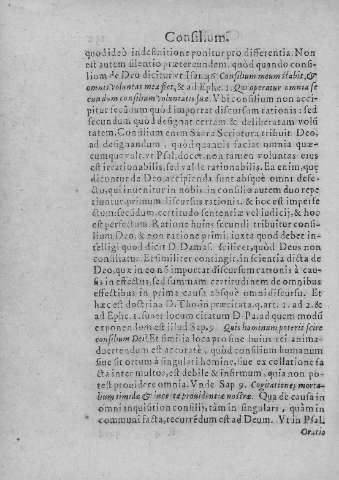 Consilium.
quod ideò indefinitione ponitur pro differentia. Non
est autem silentio prætereundem, quòd quando consi-
lium de Deo dicitur vt Isai. 46 Consilium meum stabit, &
omnis voluntas mea fiet, & ad Ephe. 1. Qui operatur omnia se
cundum consilium voluntatis suæ. Vbi consilium non acci-
pitur secundum quod importat discursum rationis: sed
secundum quod designat certam & deliberatam volū
tatem. Consilium enim Sacra Scriptura tribuit Deo,
ad designandum, quòd quanuis faciat omnia quæ-
cumque vult, vt Psal. docet non tamen voluntas eius
est irrationabilis, sed valde rationabilis. Ea enim, quę
dicuntur de Deo, accipienda sunt absque omni defe-
ctu, qui inuenitur in nobis, in consilio autem duo repe
riuntur, primum discursus rationis, & hoc est imperfe
ctum: secūdum, certitudo sententiæ vel iudicij, & hoc
est perfectum. Ratione huius secundi tribuitur consi-
lium Deo, & non ratione primi, iuxta quod debet in-
telligi quod dicit D. Damas. scilicet, quòd Deus non
consiliatur. Et similiter contingit in scientia dicta de
Deo, quæ in eo nō importat discursum rationis à cau-
sis in effectus, sed summam certitudinem de omnibus
effectibus in prima causa absque omni discursu. Et
hæc est doctrina D. Thomæ in præcitata q. art. 1. ad 2. &
ad Ephe. 1. super locum citatum D. Pa. ad quem modū
exponendum est illud Sap. 9. Quis hominum poterit scire
consilium Dei? Et similia loca pro fine huius rei anima-
duertendum est accuratè, quòd consilium humanum
siue sit ortum à singulari homine, siue ex collatione fa
cta inter multos, est debile & infirmum, quia non po-
test prouidere omnia. Vnde Sap 9. Cogitationes morta-
lium timidæ & incertæ prouidentiæ nostræ. Qua de causa in
omni inquisitione consilij, tàm in singulari, quàm in
communi facta, recurrēdum est ad Deum. Vt in Psal.
Oratio